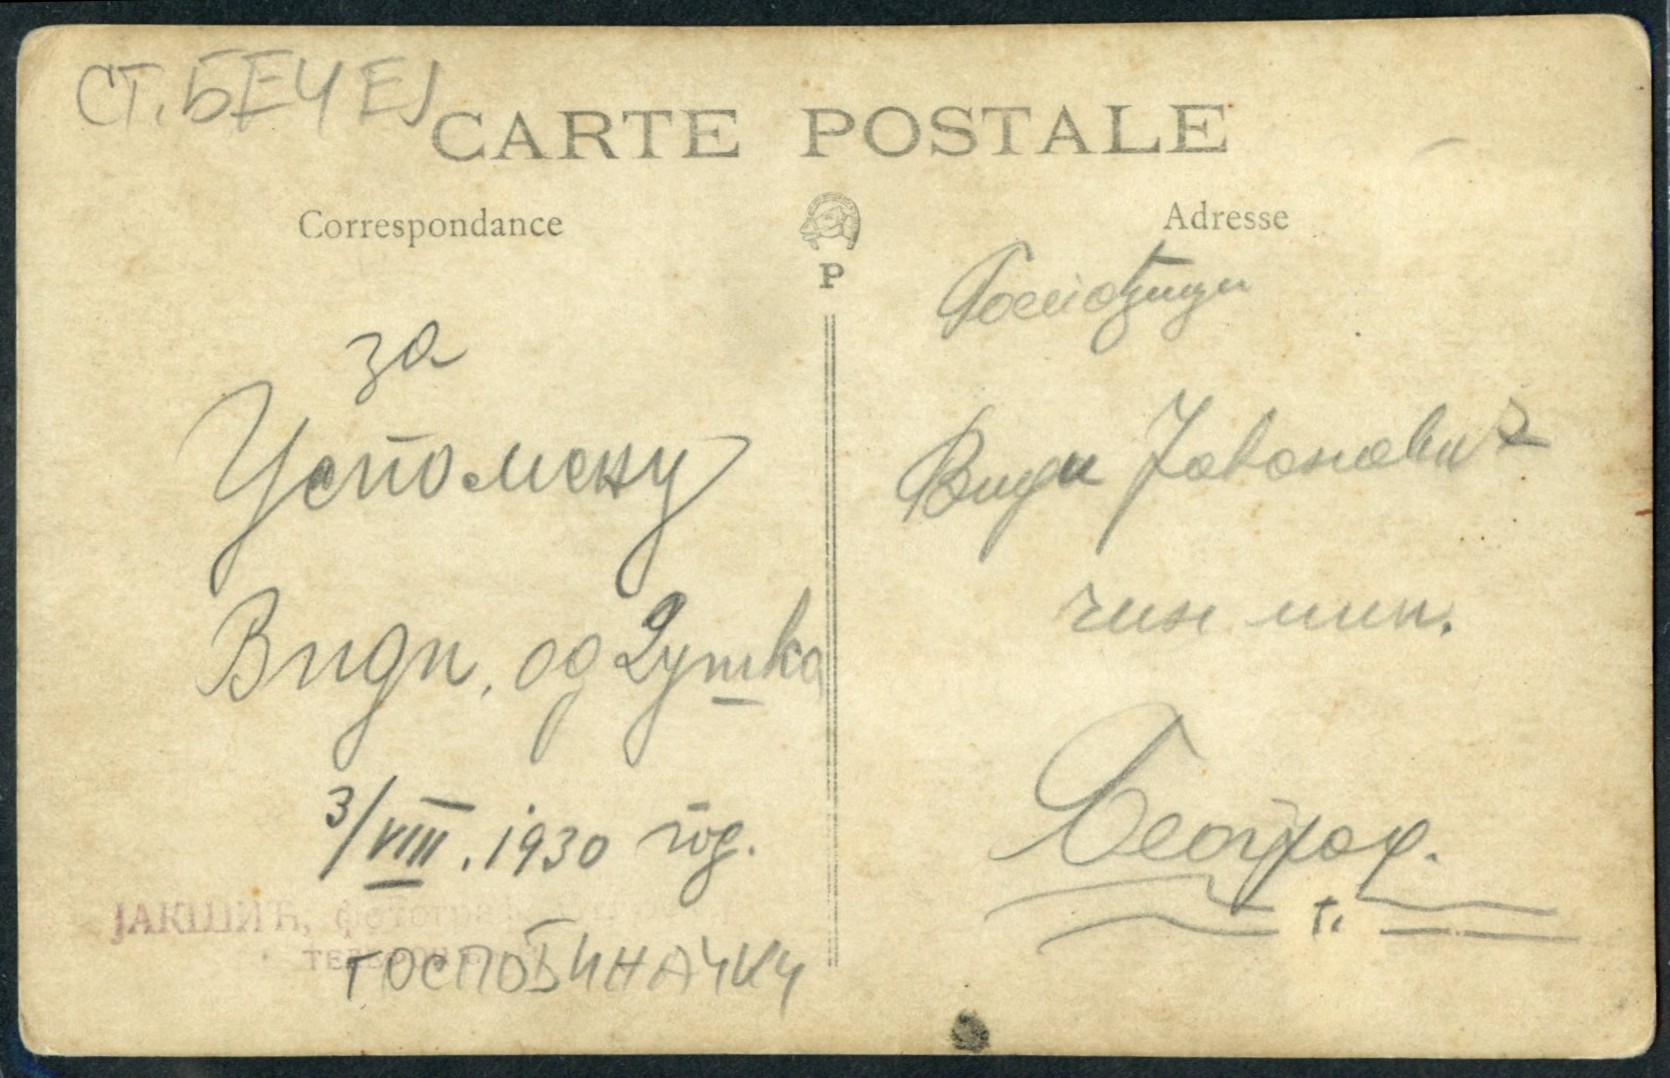 СТ. БЕЧЕЈ
CARTE POSTALE
Correspondance
за
Успомену
Види, од Душка
3/VIII. 1930 год.
ЈАКШИЋ, фотограф
ТЕЛЕФОН
Adresse
Госпођици
Види Јовановић
чин мин.
Београд.
т.
P